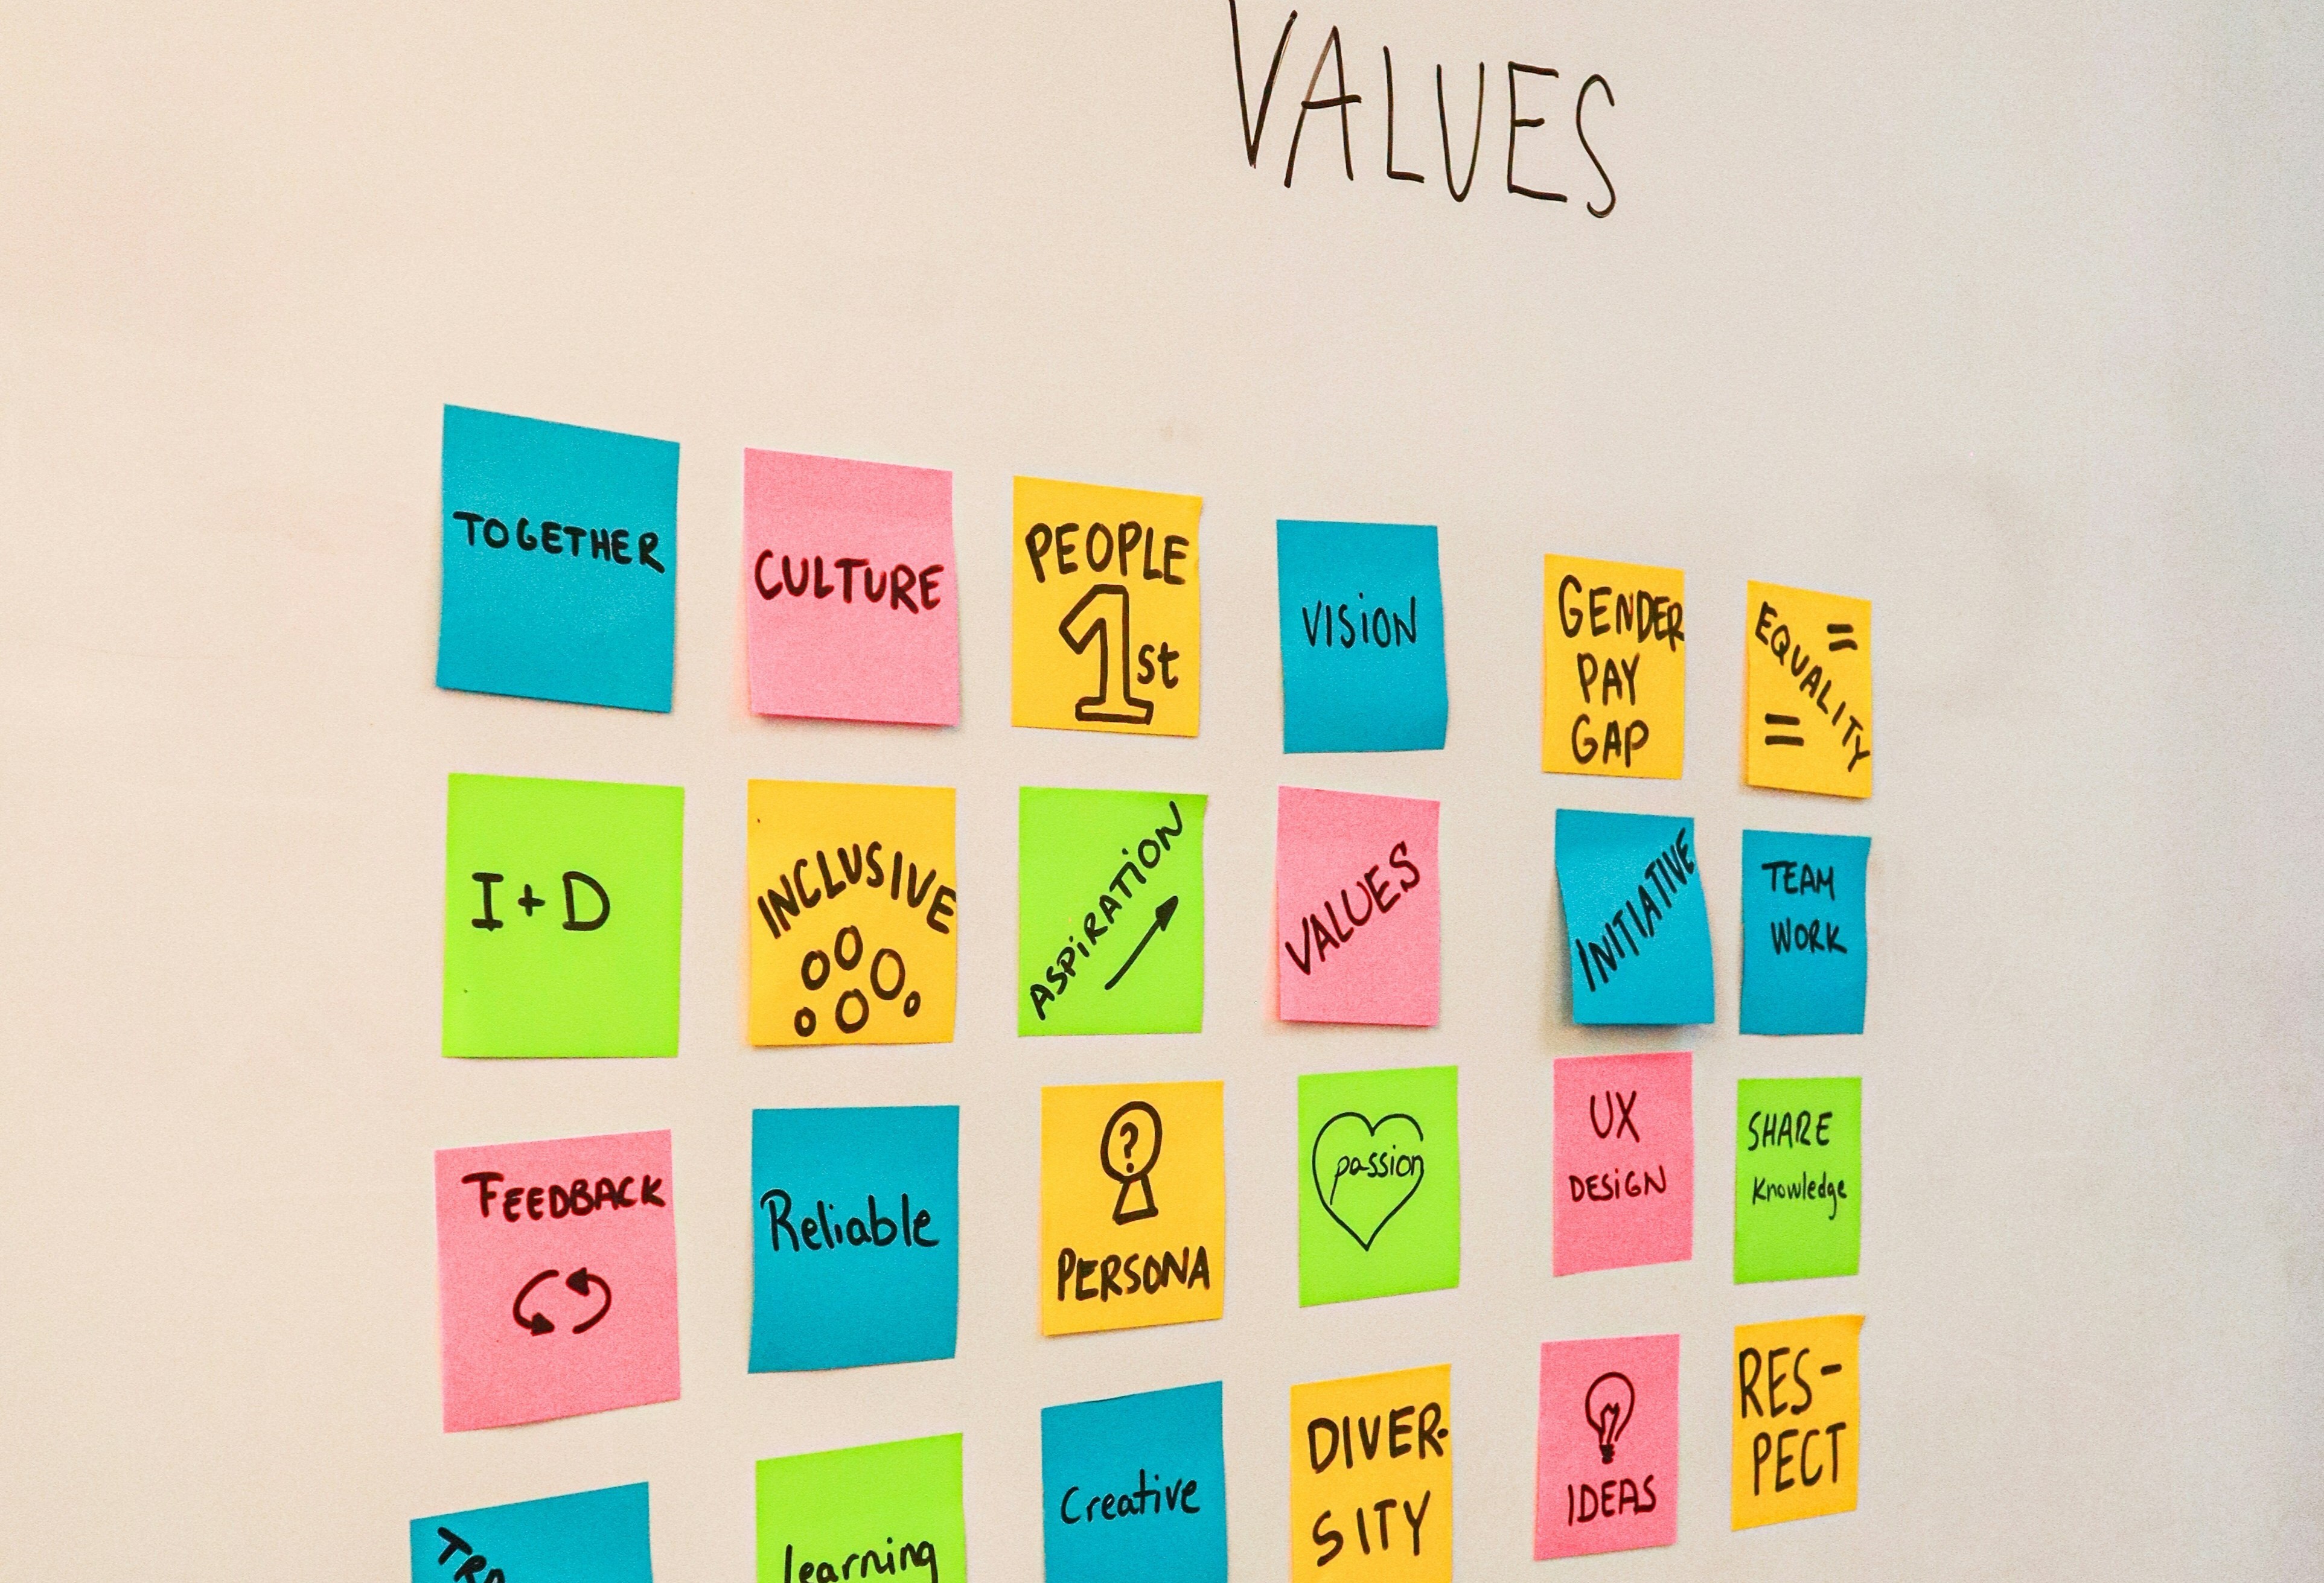 VALUES
TOGETHER
CULTURE
PEOPLE
1st
VISiON
GENDER
PAY
GAP
=
EQUALITY
=
I+D
INCLUSIVE
ASPiRATiON
VALUES
INITIATIVE
TEAM
WORK
FEEDBACK
Reliable
?
PERSONA
passion
UX
DESiGN
SHARE
Knowledge
learning
Creative
DIVER-
SITY
IDEAS
RES-
PECT